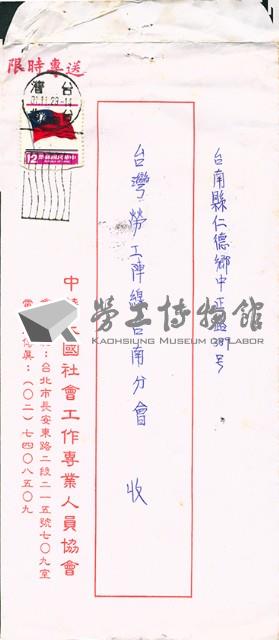 限時專送
台灣
81.11.23.14
台北
12
中華民國郵票
台南縣仁德鄉中正路389号
台灣勞工陣線台南分會 收
勞工博物館
KAOHSIUNG MUSEUM OF LABOR
中華民國社會工作專業人員協會
會址：台北市長安東路二段二一五號七〇九室
電話傳真：(〇二)七四〇八五〇九